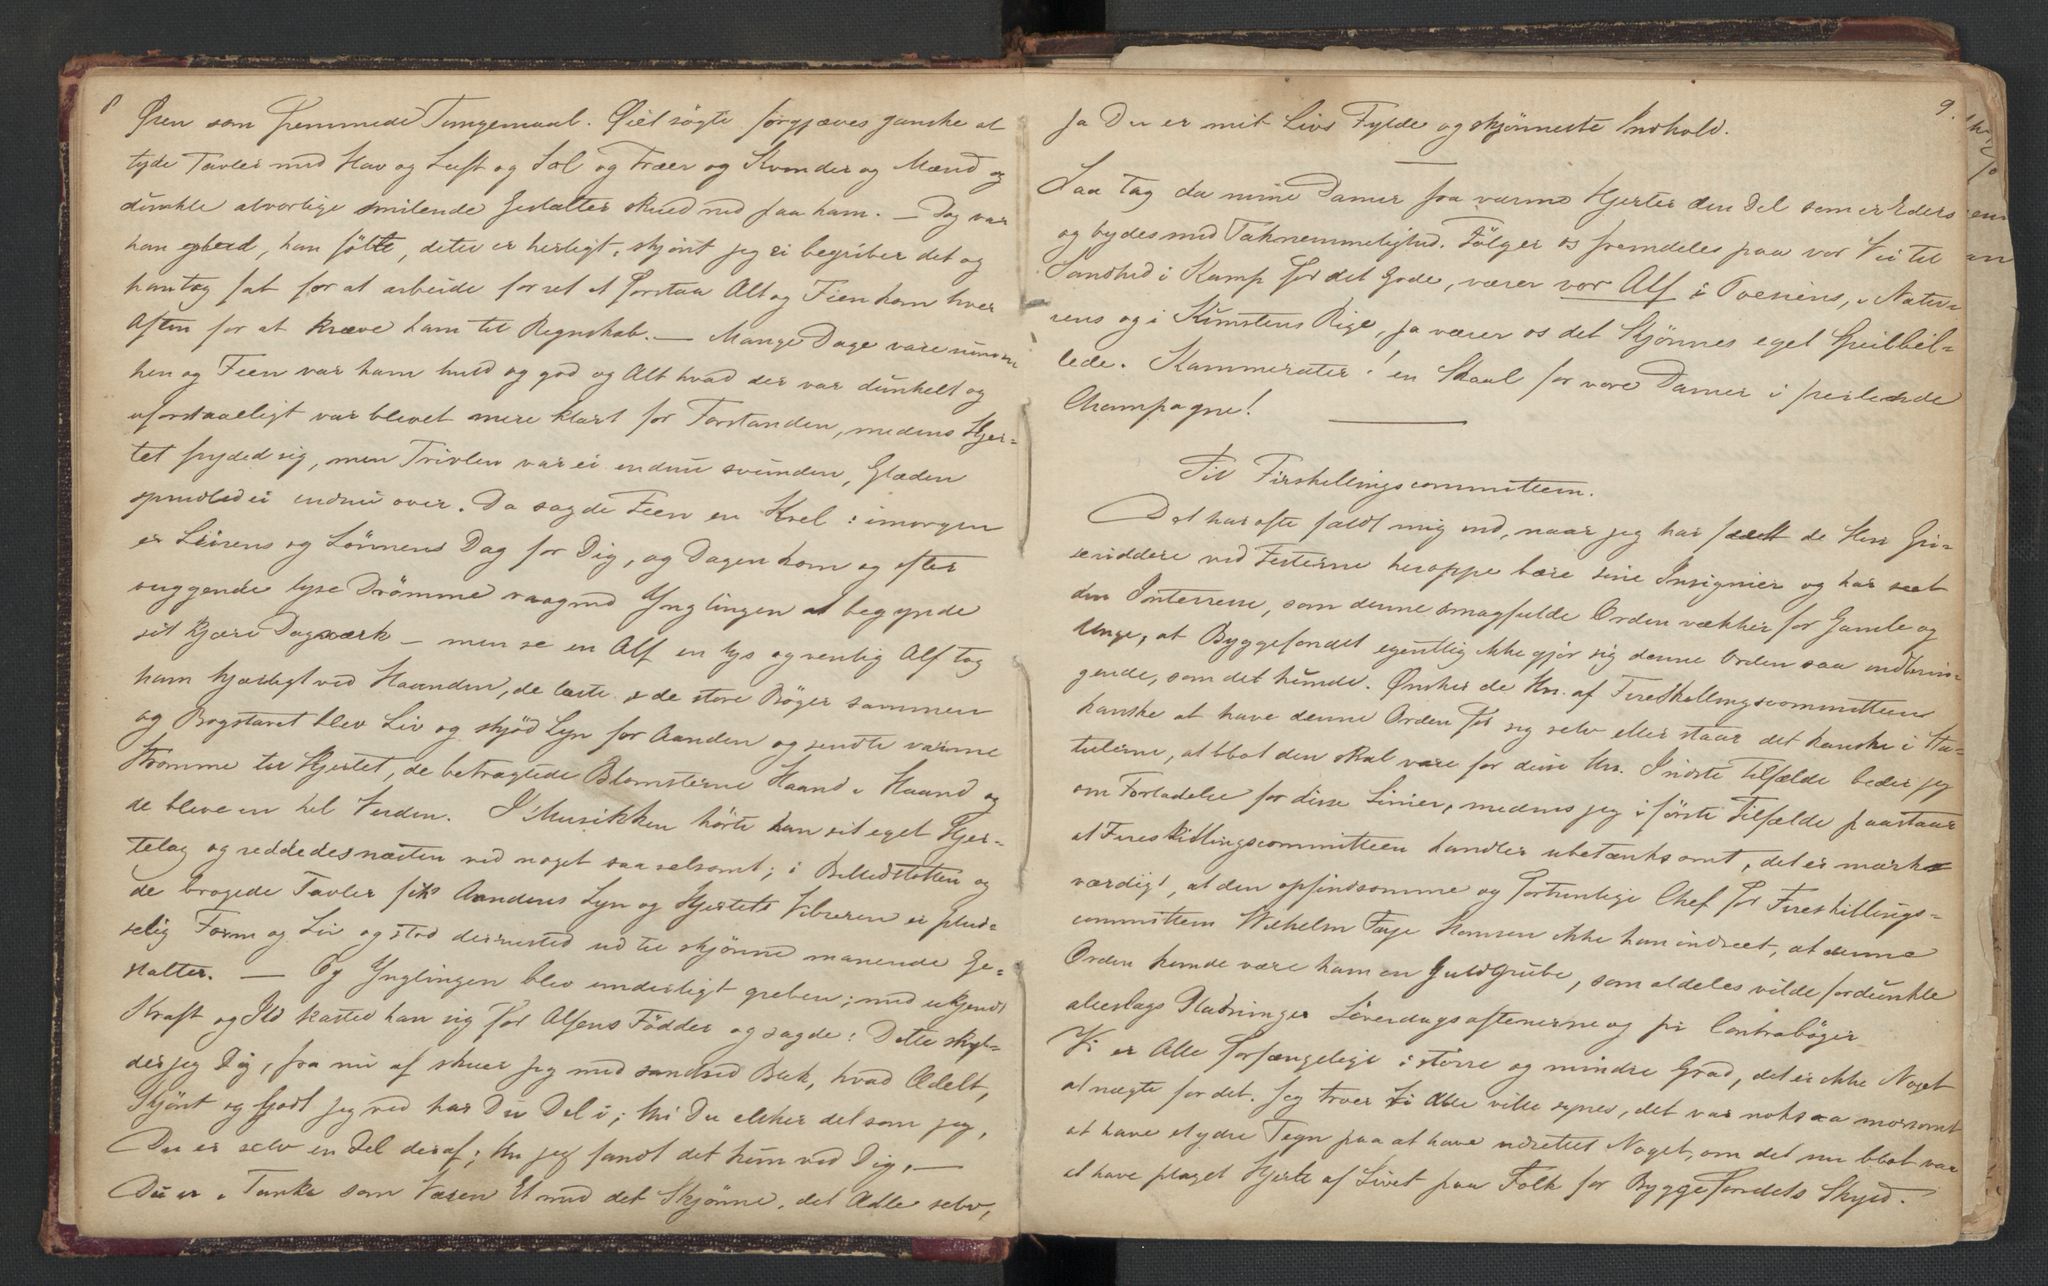 8
Øren som fremmede Tungemaal. Øiet søgte forgjæves ganske at
tyde Tavler med Hav og Luft og Sol og Træer og Kvinder og Mænd og
dunkle alvorlige smilende Gestalter skued ned paa ham. — Dog var
han glad, han følte, dette er herligt, skjønt jeg ei begriber det og
han tog fat for at arbeide for ret at forstaa Alt og Feen kom hver
Aften for at kræve ham til Regnskab. — Mange Dage vare
hen og Feen var ham huld og god og Alt hvad der var dunkelt og
uforstaaeligt var blevet mere klart for Forstanden, medens Hjer-
tet fryded sig, men Tvivlen var ei endnu svunden, Glæden
sprudled ei endnu over. Da sagde Feen en Kvel: imorgen
er Seirens og Lønnens Dag for Dig, og Dagen kom og efter
vuggende lyse Drømme vaagned Ynglingen at begynde
sit kjære Dagværk — men se en Alf en lys og venlig Alf tog
ham kjærligt ved Haanden, de læste i de store Bøger sammen
og Bogstavet blev Liv og skjød Lyn for Aanden og sendte varme
Strømme til Hjertet, de betragtede Blomsterne Haand i Haand og
de bleve en hel Verden. I Musikken hørte han sit eget Hjer-
teslag og reddedes næsten ved noget saa selsomt; i Billedstøtten og
de brogede Tavler fik Aandens Lyn og Hjertets Vibreren ei plud-
selig Form og Liv og stod derneeed ud til skjønne manende Ge-
stalter. — Og Ynglingen blev underligt greben; med ukjendt
Kraft og Ild kasted han sig for Alfens Fødder og sagde: Dette skyl-
der jeg Dig, fra nu af skuer jeg med sandsed Blik, hvad Ædelt,
Skjønt og Godt jeg ved har Du Del i; thi Du elsker det som jeg,
Du er selv en Del deraf; thi jeg fandt det kun ved Dig, —
Du er i Tanke som Væren Et med det Skjønne, det Ædle selv,
9.
Ja Du er mit Livs Fylde og skjønneste Indhold.
Saa tag da mine Damer fra varme Hjerter den Del som er Eders
og bydes med Taknemmelighed. Følger os fremdeles paa vor Vei til
Sandhed i Kamp for det Gode, værer vor Alf i Poesiens, i Natu-
rens og i Kunstens Rige, ja værer os det Skjønnes eget Speilbil-
lede. Kammerater! en Skaal for vore Damer i perlende
Champagne!
Til Firskillingscommitteen.
Det har ofte faldt mig ind, naar jeg har seet de Herr Gri-
seriddere ved Festerne heroppe bære sine Insignier og har seet
den Interresse, som denne smagfulde Orden vækker for Gamle og
Unge, at Byggefondet egentlig ikke gjør sig denne Orden saa indbrin-
gende, som det kunde. Ønsker de Hrr. af Fireskillingscommitteen
kanske at have denne Orden for sig selv eller staar det kanske i Sta-
tuterne, at blot den skal være for disse Hrr. I sidste Tilfælde beder jeg
om Forladelse for disse Linier, medens jeg i første Tilfælde paastaar
at Fireskillingscommitteen handler ubetænksomt, det er mærk-
værdigt, at den opfindsomme og fortrinlige Chef for Fireskillings-
committeen Wilhelm Faye Hansen ikke han indseet, at denne
Orden kunde være ham en Guldgrube, som aldeles vilde fordunkle
alleslags Pladninger Løverdagsaftenerne og pr Contrabøger
Vi er Alle forfængelige i større og mindre Grad, det er ikke Noget
at nægte for det. Jeg troer vi Alle ville synes, det var nok saa morsomt
at have et ydre Tegn paa at have udrettet Noget, om det nu blot var
at have plaget Hjerte af Livet paa Folk for Byggefondets Skyld.